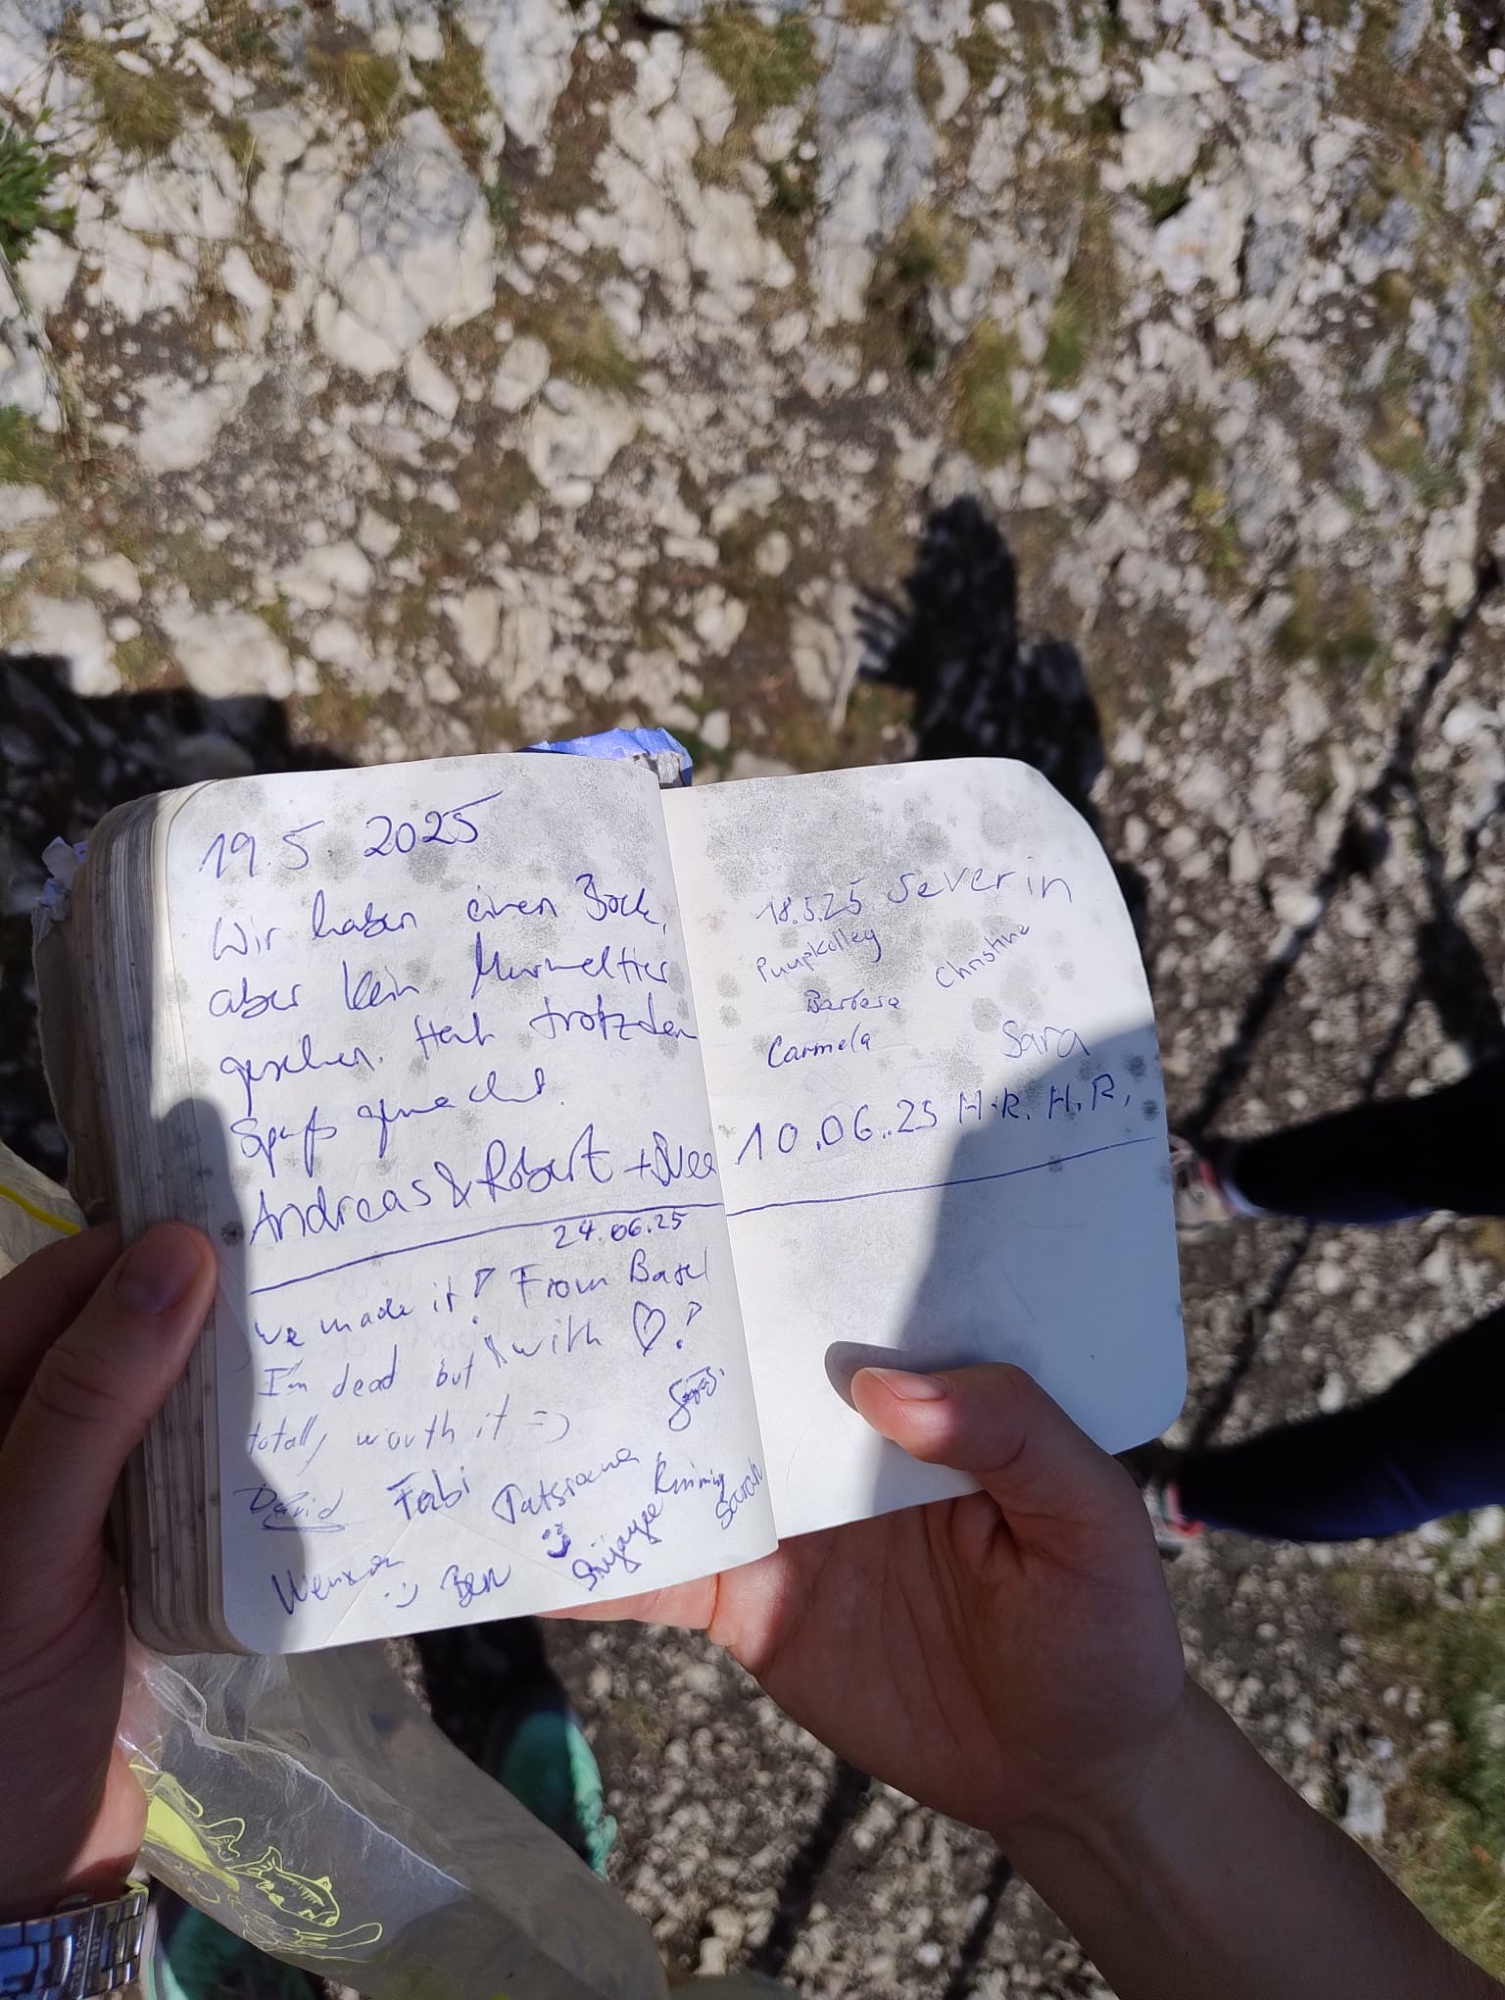 19.5 2025
Wir haben einen Bock,
aber kein Murmeltier
gesehen. Hat trotzdem
Spaß gemacht.
Andreas & Robert +
24.06.25
We made it! From Basel
with ♡!
I'm dead but
totally worth it =)
David Fabi Tatsiana
Ben Sarah
:)
18.5.25 Severin
Christine
Barbara
Carmela Sara
10.06.25 H.R. H.R.